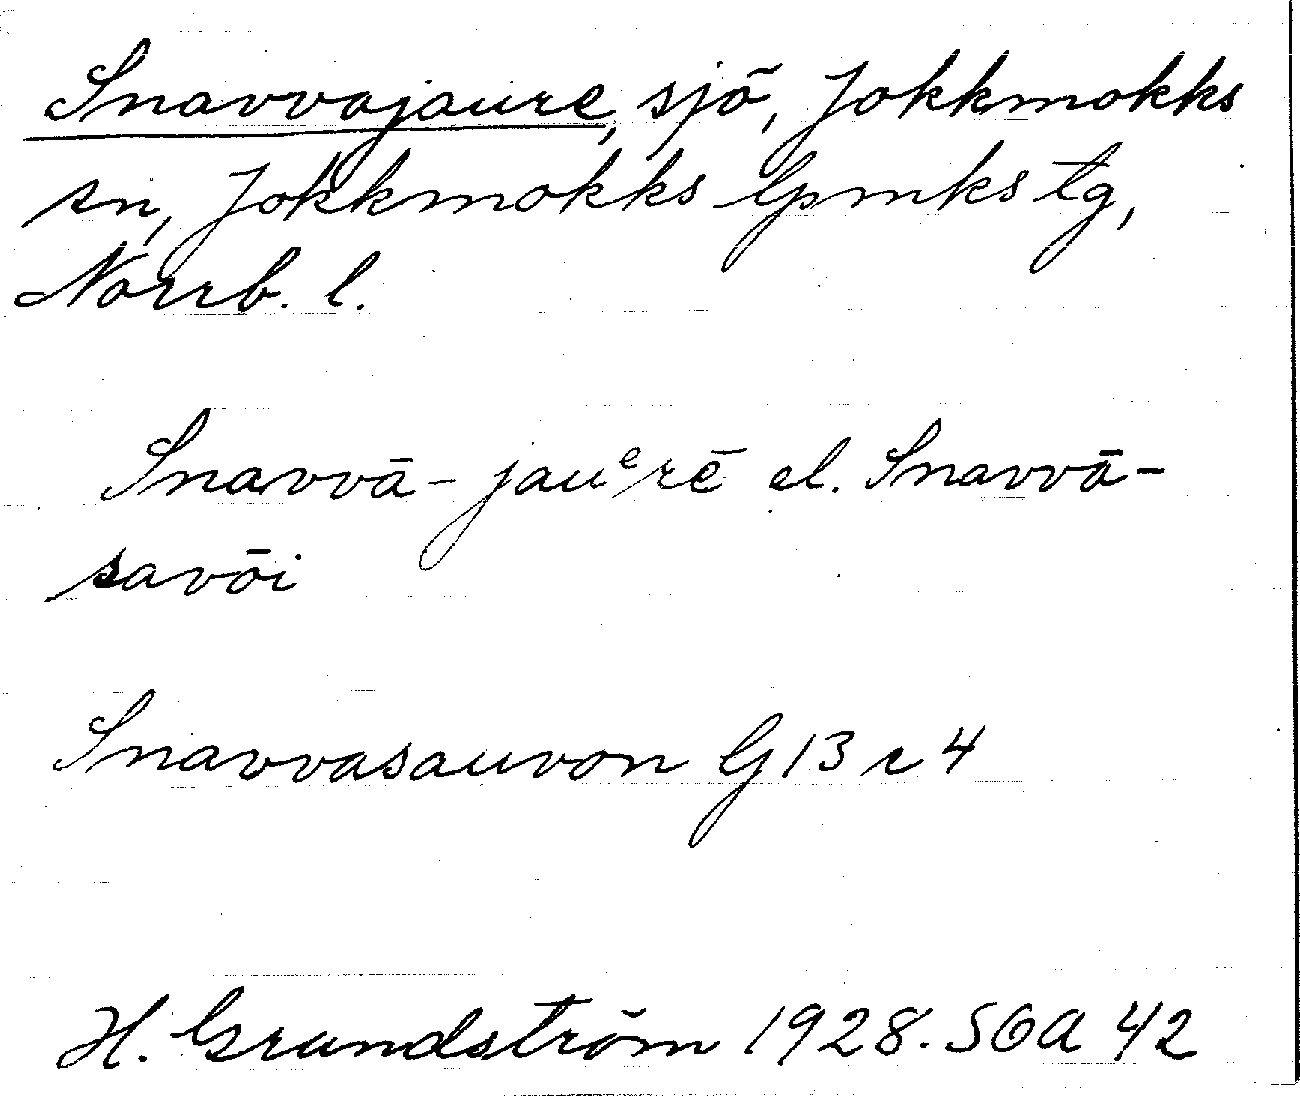 Snavvajaure, sjö, Jokkmokks
sn, Jokkmokks lpmks tg,
Norrb. l.
Snavvā-jauᵉrē el. Snavvā-
savōi
Snavvasauvon G 13 r 4
H. Grundström 1928. SOA 42